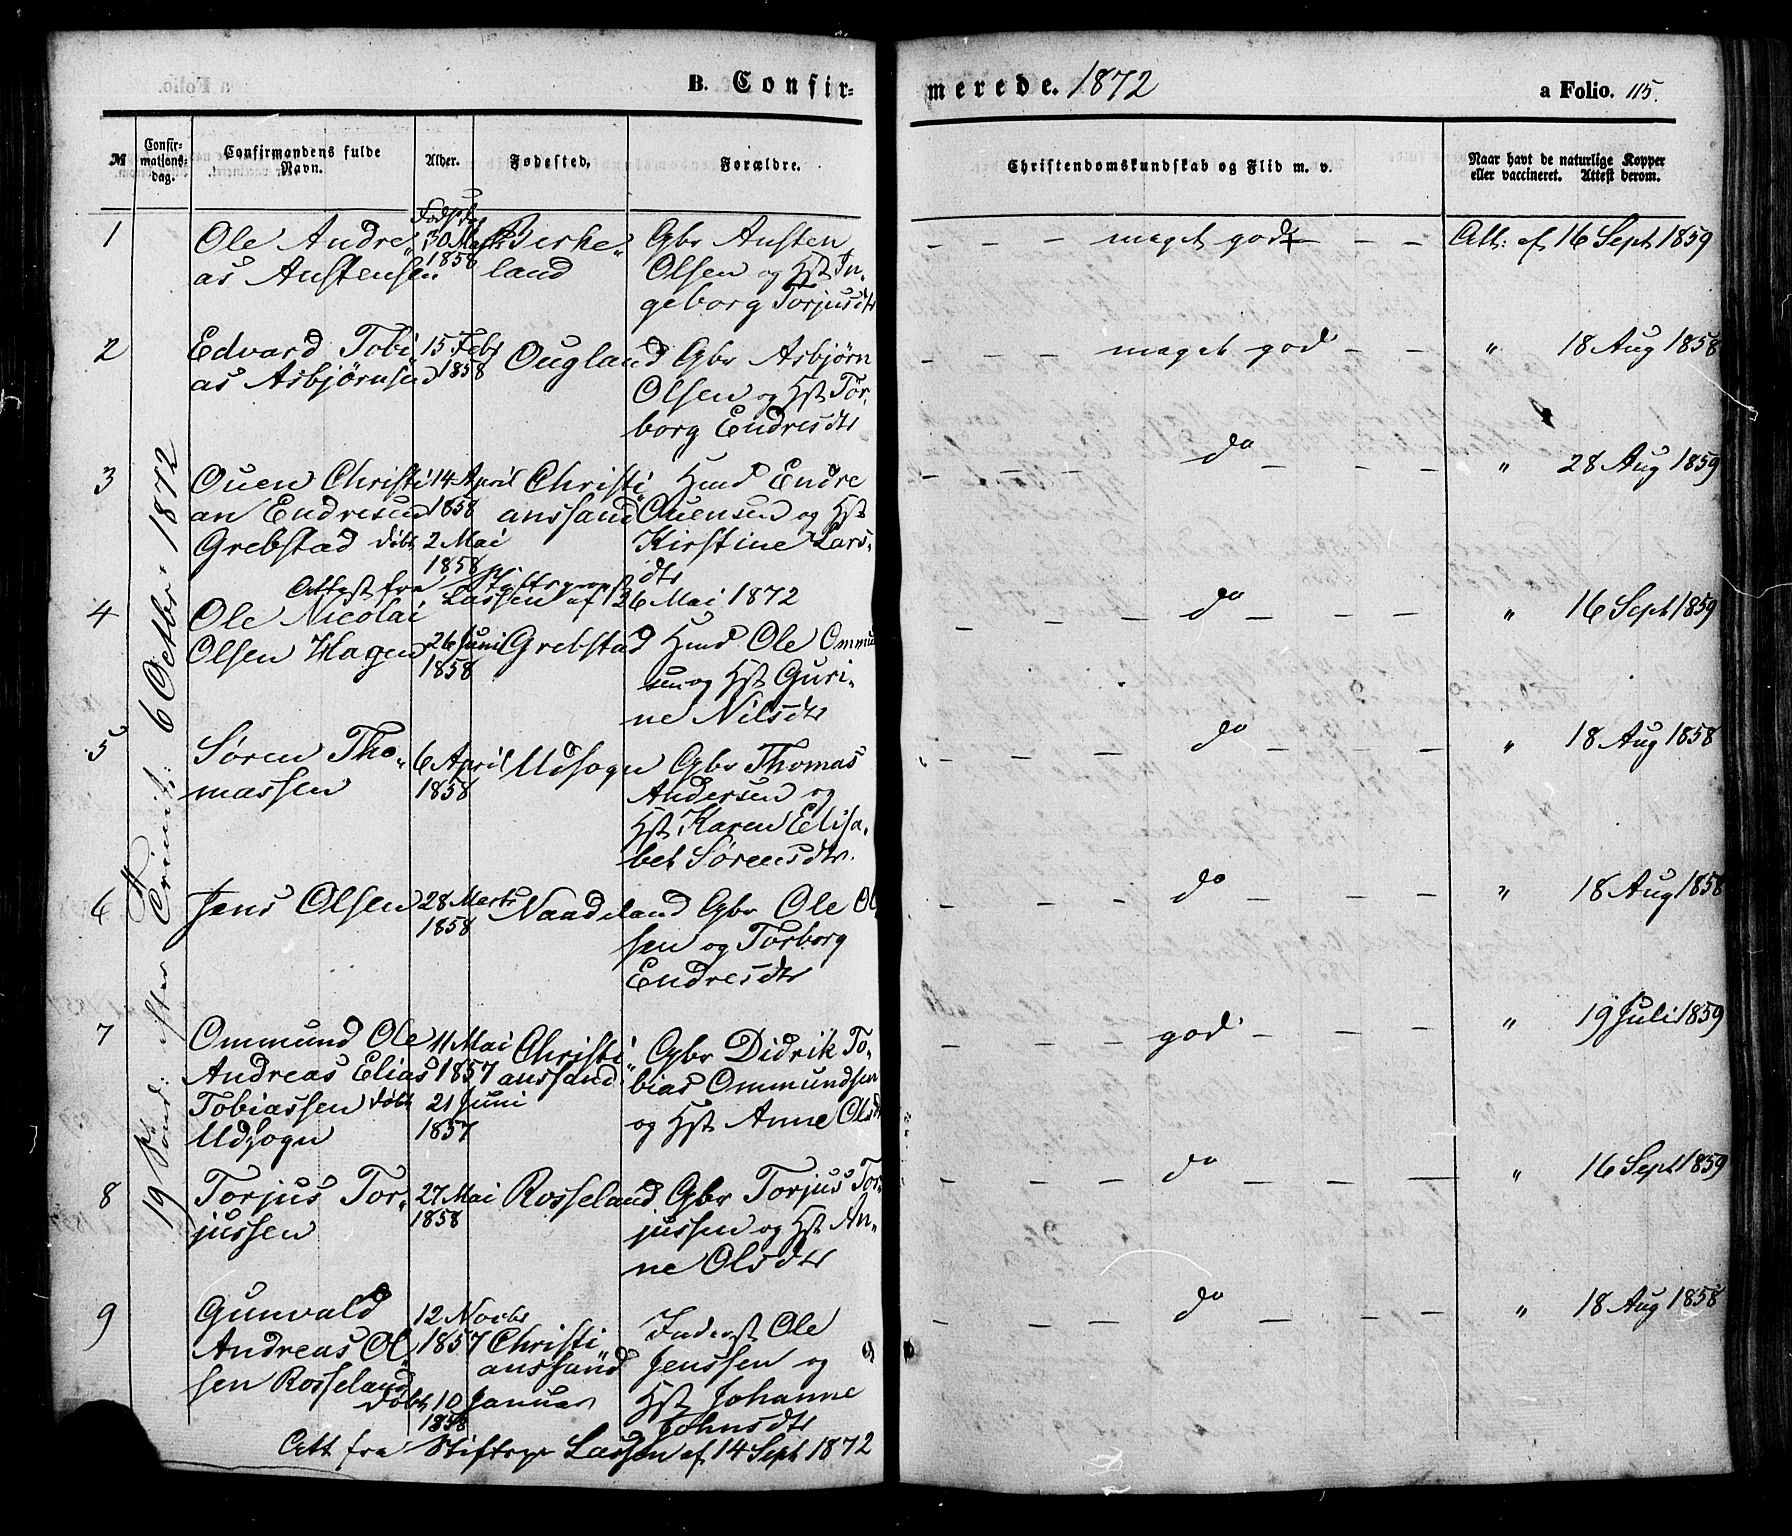 B. Confir-
merede. 1872
a Folio. 115.
№
Confir-
mations-
dag.
Confirmandens fulde
Navn.
Alder.
Fødested,
Forældre.
Christendomskundskab og Flid m. v.
Naar havt de naturlige Kopper
eller vaccineret. Attest derom.
19 Sønd: efter Trinit: 6 Octbr 1872
1
Ole Andre„
as Austensen
Føds.d.
30 Marts
1858
Birke„
land
Gbr Austen
Olsen og Hst In„
geborg Torjusdtr
- - - maget god - - -
Att: af 16 Sept 1859
2
Edvard Tobi„
as Asbjørnsen
15 Febr
1858
Ougland
Gbr Asbjørn
Olsen og Hst Tor„
borg Endresdtr
- - - maget god - -
„ 18 Aug 1858
3
Ouen Christi„
an Endresen
Grebstad døbt
14 April
1858
2 Mai
1858
Christi„
anssand
Hmd Endre
Ouensen og Hst
Kirstine Lars„
dtr
Attest fra Stiftsprovst
Lassen af 26 Mai 1872
- - - do - - -
„ 28 Aug 1859
4
Ole Nicolai
Olsen Hagen
26 Juni
1858
Grebstad
Hmd Ole Ommun
sen og Hst Guri-
ne Nilsdtr
- - - do - - -
„ 16 Sept 1859
5
Søren Tho„
massen
6 April
1858
Udsogn
Gbr Thomas
Andersen og
Hst Karen Elisa„
bet Sørensdtr.
- - - do - - -
„ 18 Aug 1858
6
Jens Olsen
28 Marts
1858
Naadeland
Gbr Ole Ol
sen og Torborg
Endresdtr
- - - do - - -
„ 18 Aug 1858
7
Ommund Ole
Andreas Elias
Tobiassen døbt
Udsogn
11 Mai
1857
21 Juni
1857
Christi„
anssand
Gbr Didrik To„
bias Ommundsen
og Hst Anne Olsdtr
- - - god - - -
„ 19 Juli 1859
8
Torjus Tor„
jussen
27 Mai
1858
Rosseland
Gbr Torjus Tor„
jussen og Hst An„
ne Olsdtr
- - - do - - -
„ 16 Sept 1859
9
Gunvald
Andreas Ol„
sen Rosseland
døbt
12 Novbr
1857
10 Januar
1858
Christi„
anssand
Inderst Ole
Jenssen og
Hst Johanne
Johnsdtr
Att fra Stiftspr Lassen af 14 Sept 1872
- - - do - - -
„ 18 Aug 1858